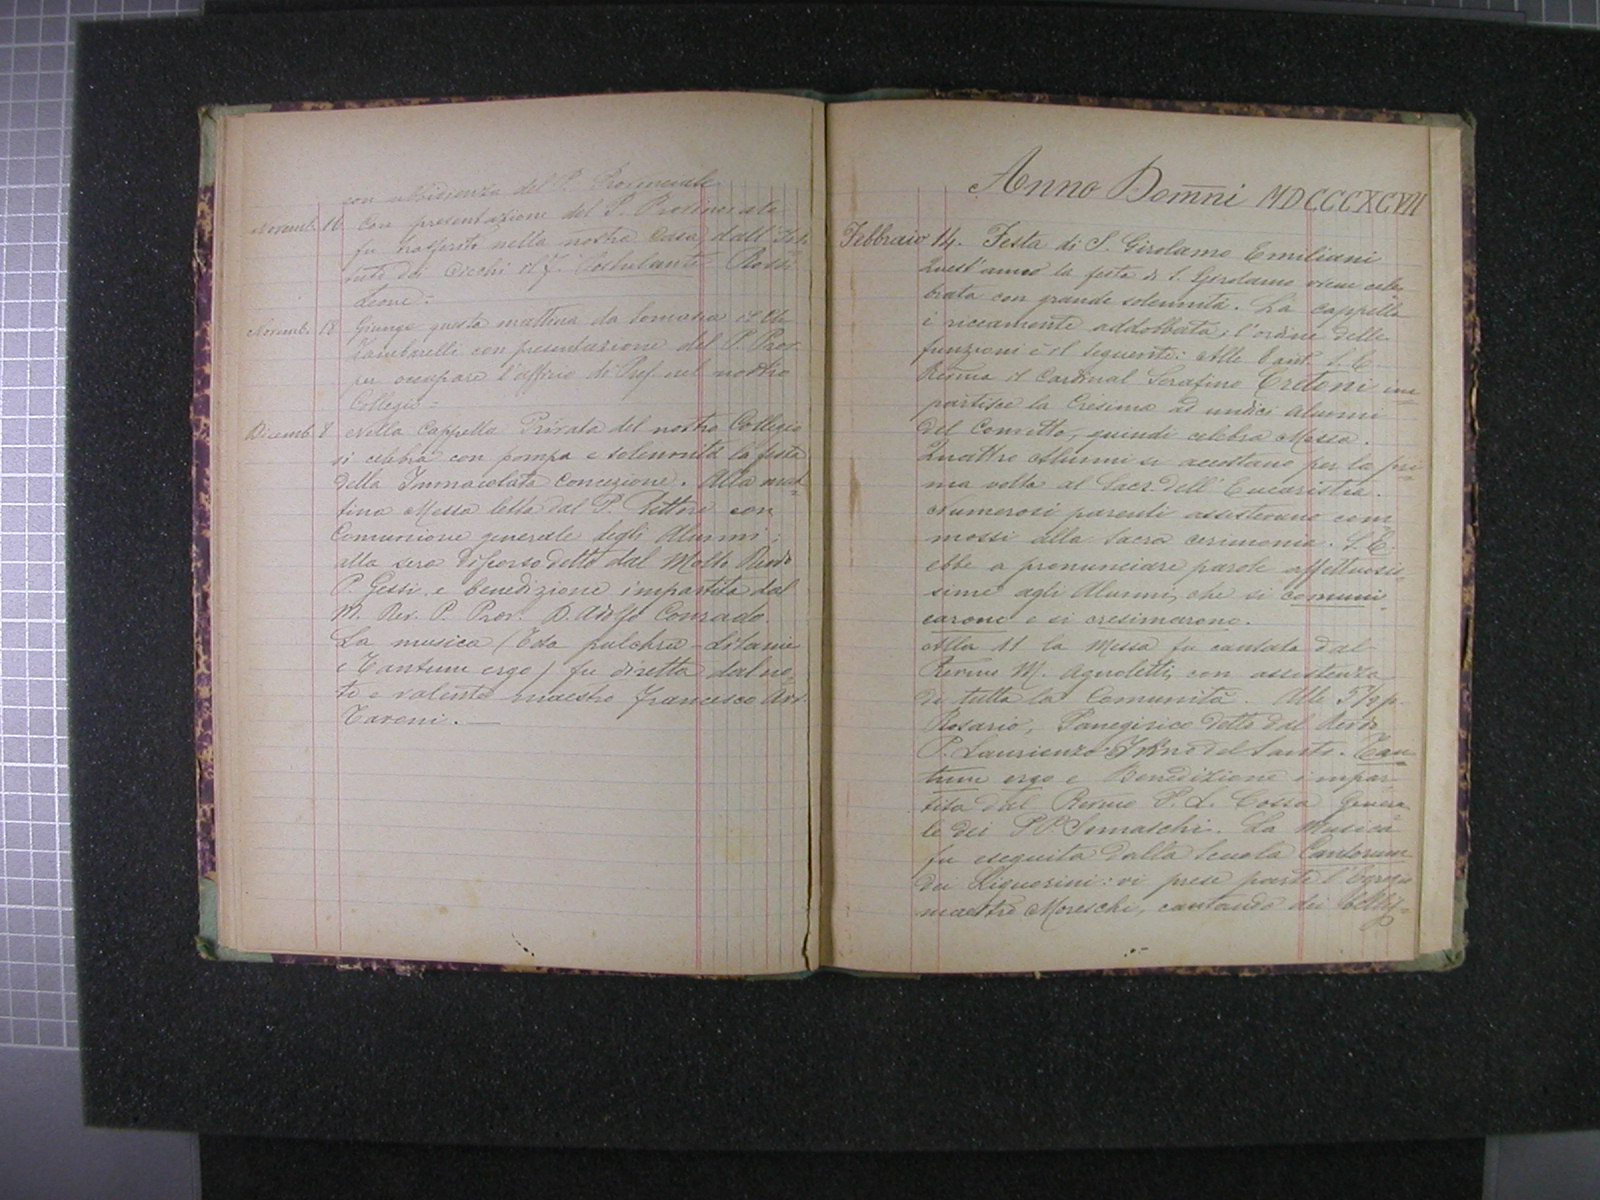 con ubbidienza del P. Provinciale
Novemb. 16 Con presentazione del P. Provinciale
fu trasferito nella nostra Casa dall' Isti-
tuto dei Ciechi il f. Postulante Rossi
Leone =
Novemb. 18 Giunge questa mattina da Somasca il Ch.
Zambarelli con presentazione del P. Prov.
per occupare l'ufficio di Pref. nel nostro
Collegio =
Dicemb. 8 Nella Cappella Privata del nostro Collegio
si celebra con pompa e solennità la festa
della Immacolata Concezione. Alla mat-
tina Messa letta dal P. Pettori con
Comunione generale degli Alunni;
alla sera discorso detto dal Molto Rendo
P. Gessi, e benedizione impartita dal
M. Rev. P. Prov. D. Adolfo Conrado.
La musica (Tota pulchra - litanie
e Tantum ergo) fu diretta dal no-
to e valente maestro Francesco
Anno Domni MDCCCXCVII
Febbraio 14. Festa di S. Girolamo Emiliani
Quest'anno la festa di S. Girolamo viene cele-
brata con grande solennità. La cappella
è riccamente addobbata; l'ordine delle
funzioni è il seguente: Alle 8 ant. S. E.
Revma il Cardinal Serafino Cretoni im-
partisce la Cresima ad undici alunni
del Convitto, quindi celebra Messa.
Quattro Alunni si accostano per la pri-
ma volta al Sacr. dell' Eucaristia.
Numerosi parenti assistevano com-
mossi alla Sacra cerimonia. S. E.
ebbe a pronunciare parole affettuosis-
sime agli Alunni, che si comuni-
carono e si cresimarono.
Alla 11 la Messa fu cantata dal
Revmo M. Agnoletti, con assistenza
di tutta la Comunità. Alle 5½ p.
Rosario, Panegirico detto dal Rendo
P. Laurienzo, Inno del Santo. Tan-
tum ergo e Benedizione impar-
tita dal Revmo P. L. Cossa Genera-
le dei PP. Somaschi. La musica
fu eseguita dalla Scuola Cantorum
dei Liguorini: vi prese parte l'egregio
maestro Moreschi, cantando dei bellis-